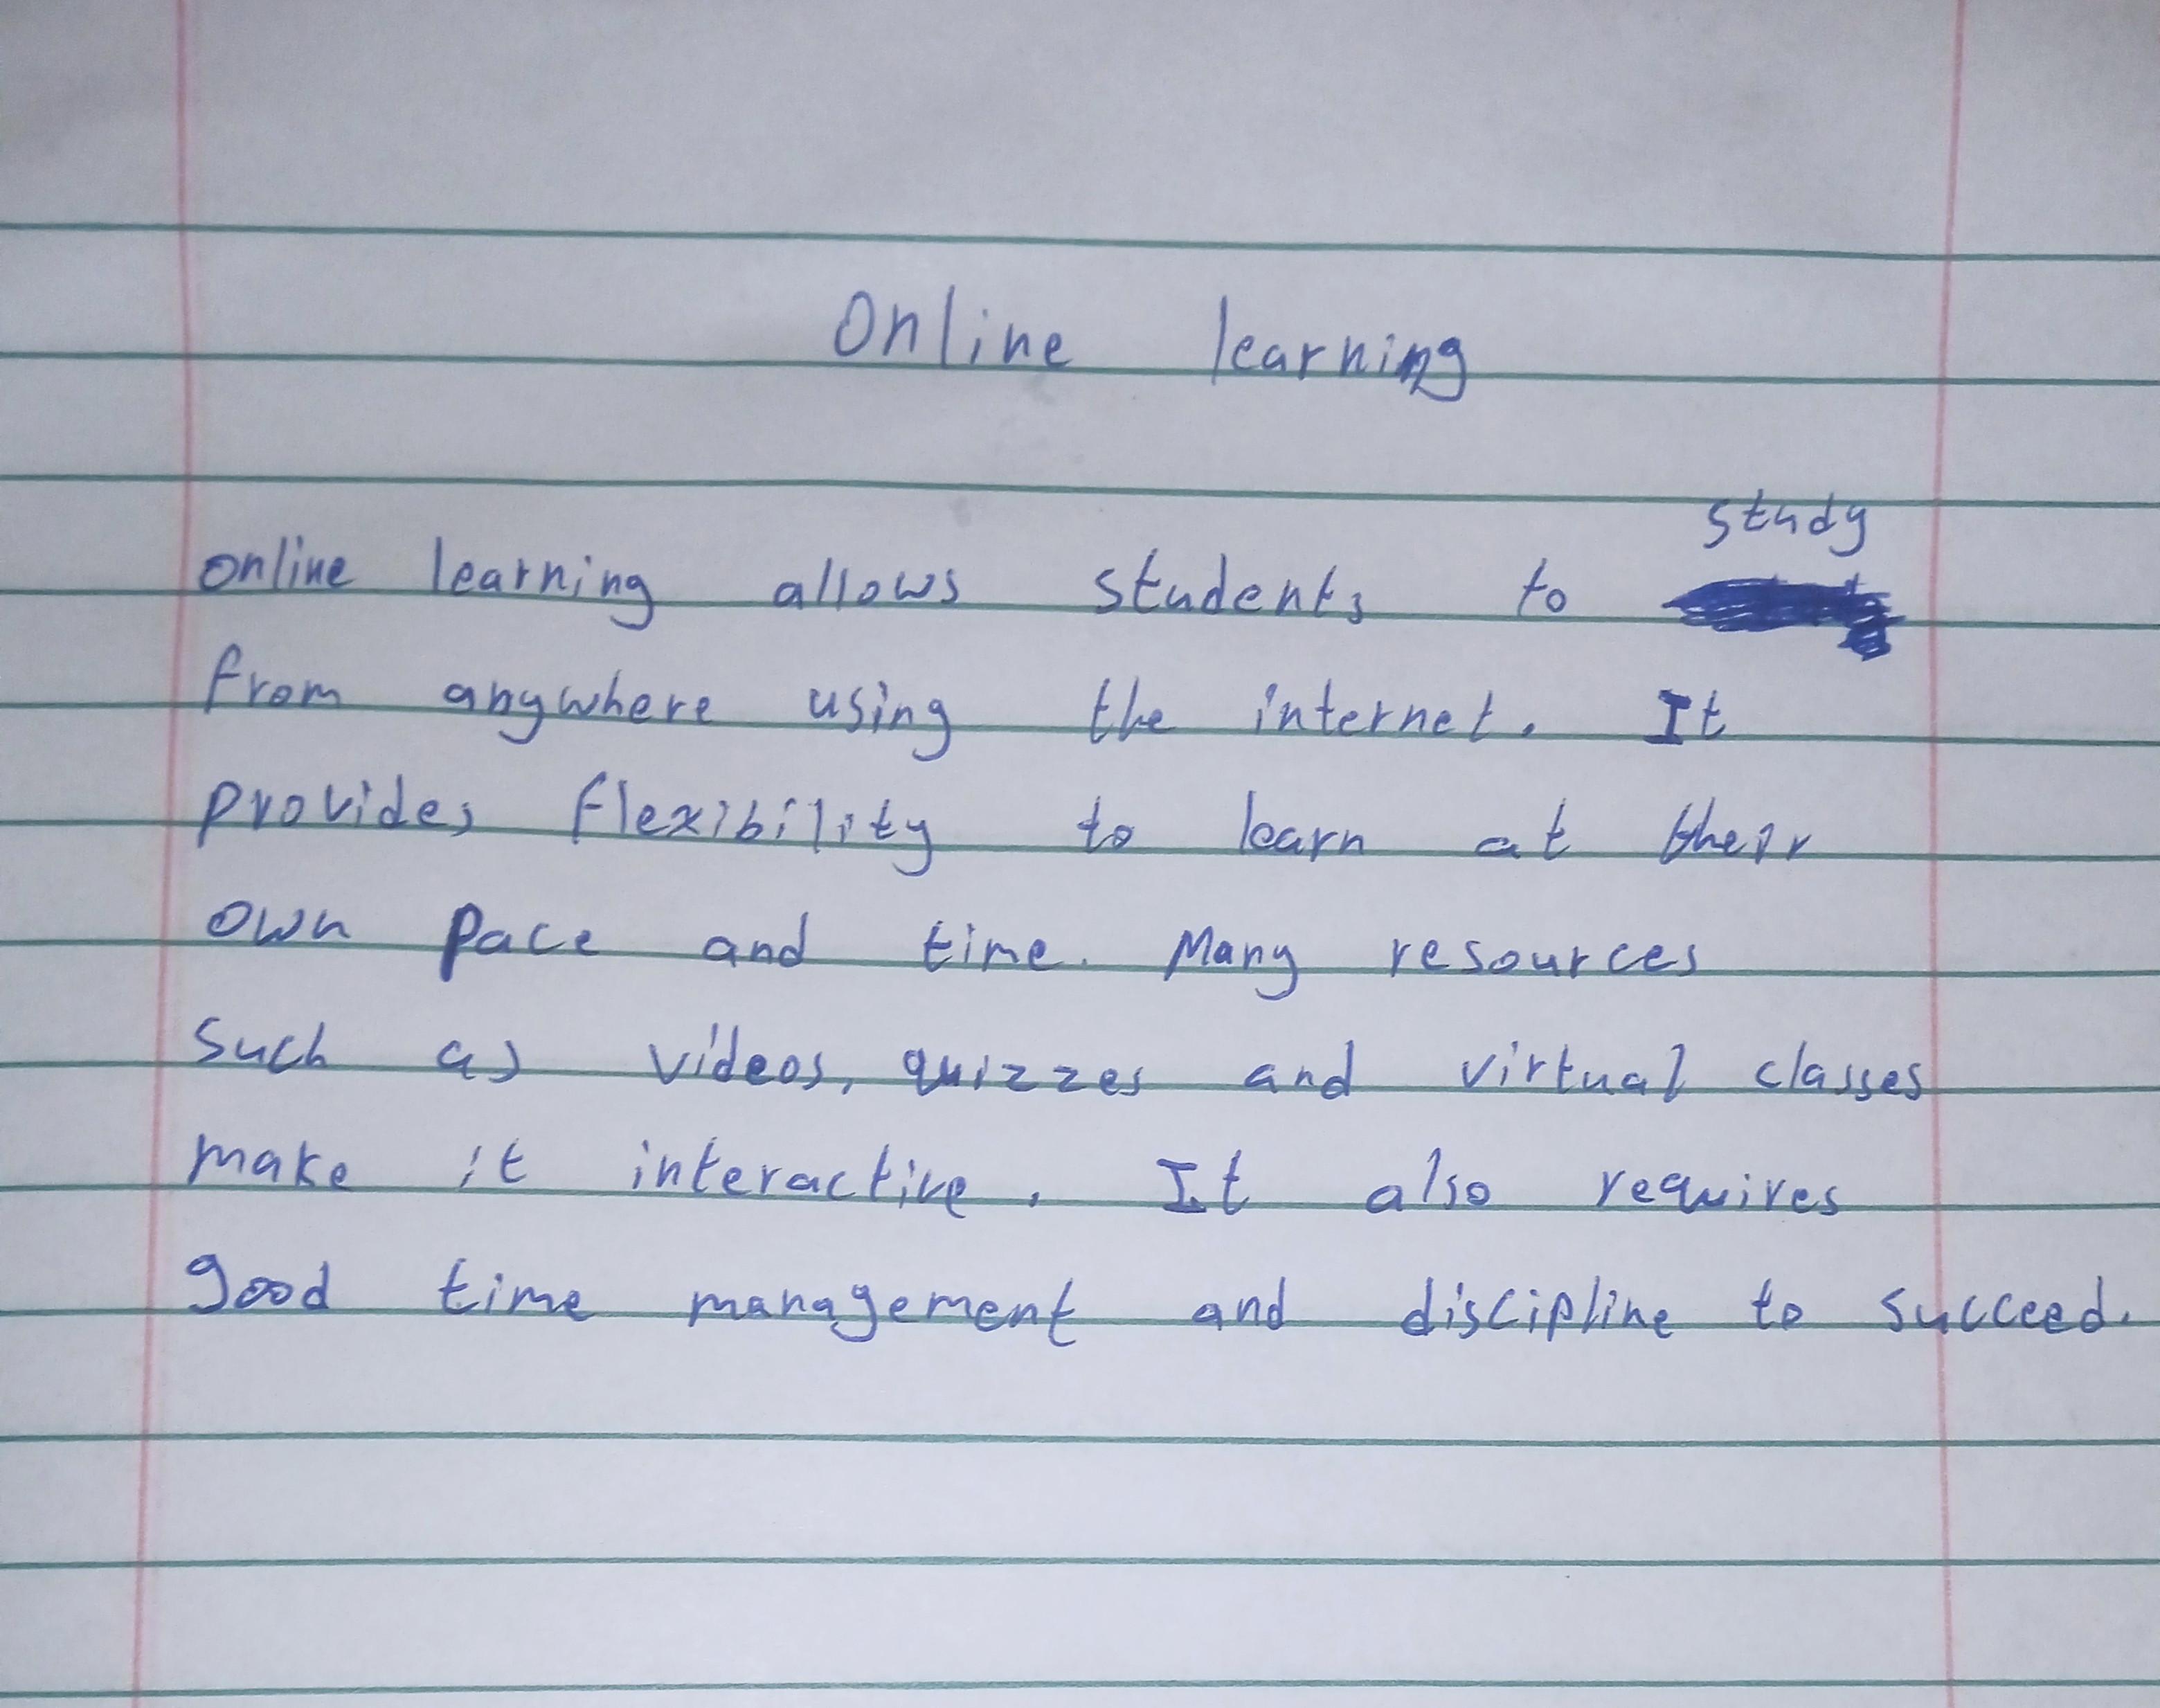 Online learning
online learning allows students to study
from anywhere using the internet. It
provides flexibility to learn at their
own pace and time. Many resources
such as videos, quizzes and virtual classes
make it interactive. It also requires
good time management and discipline to succeed.